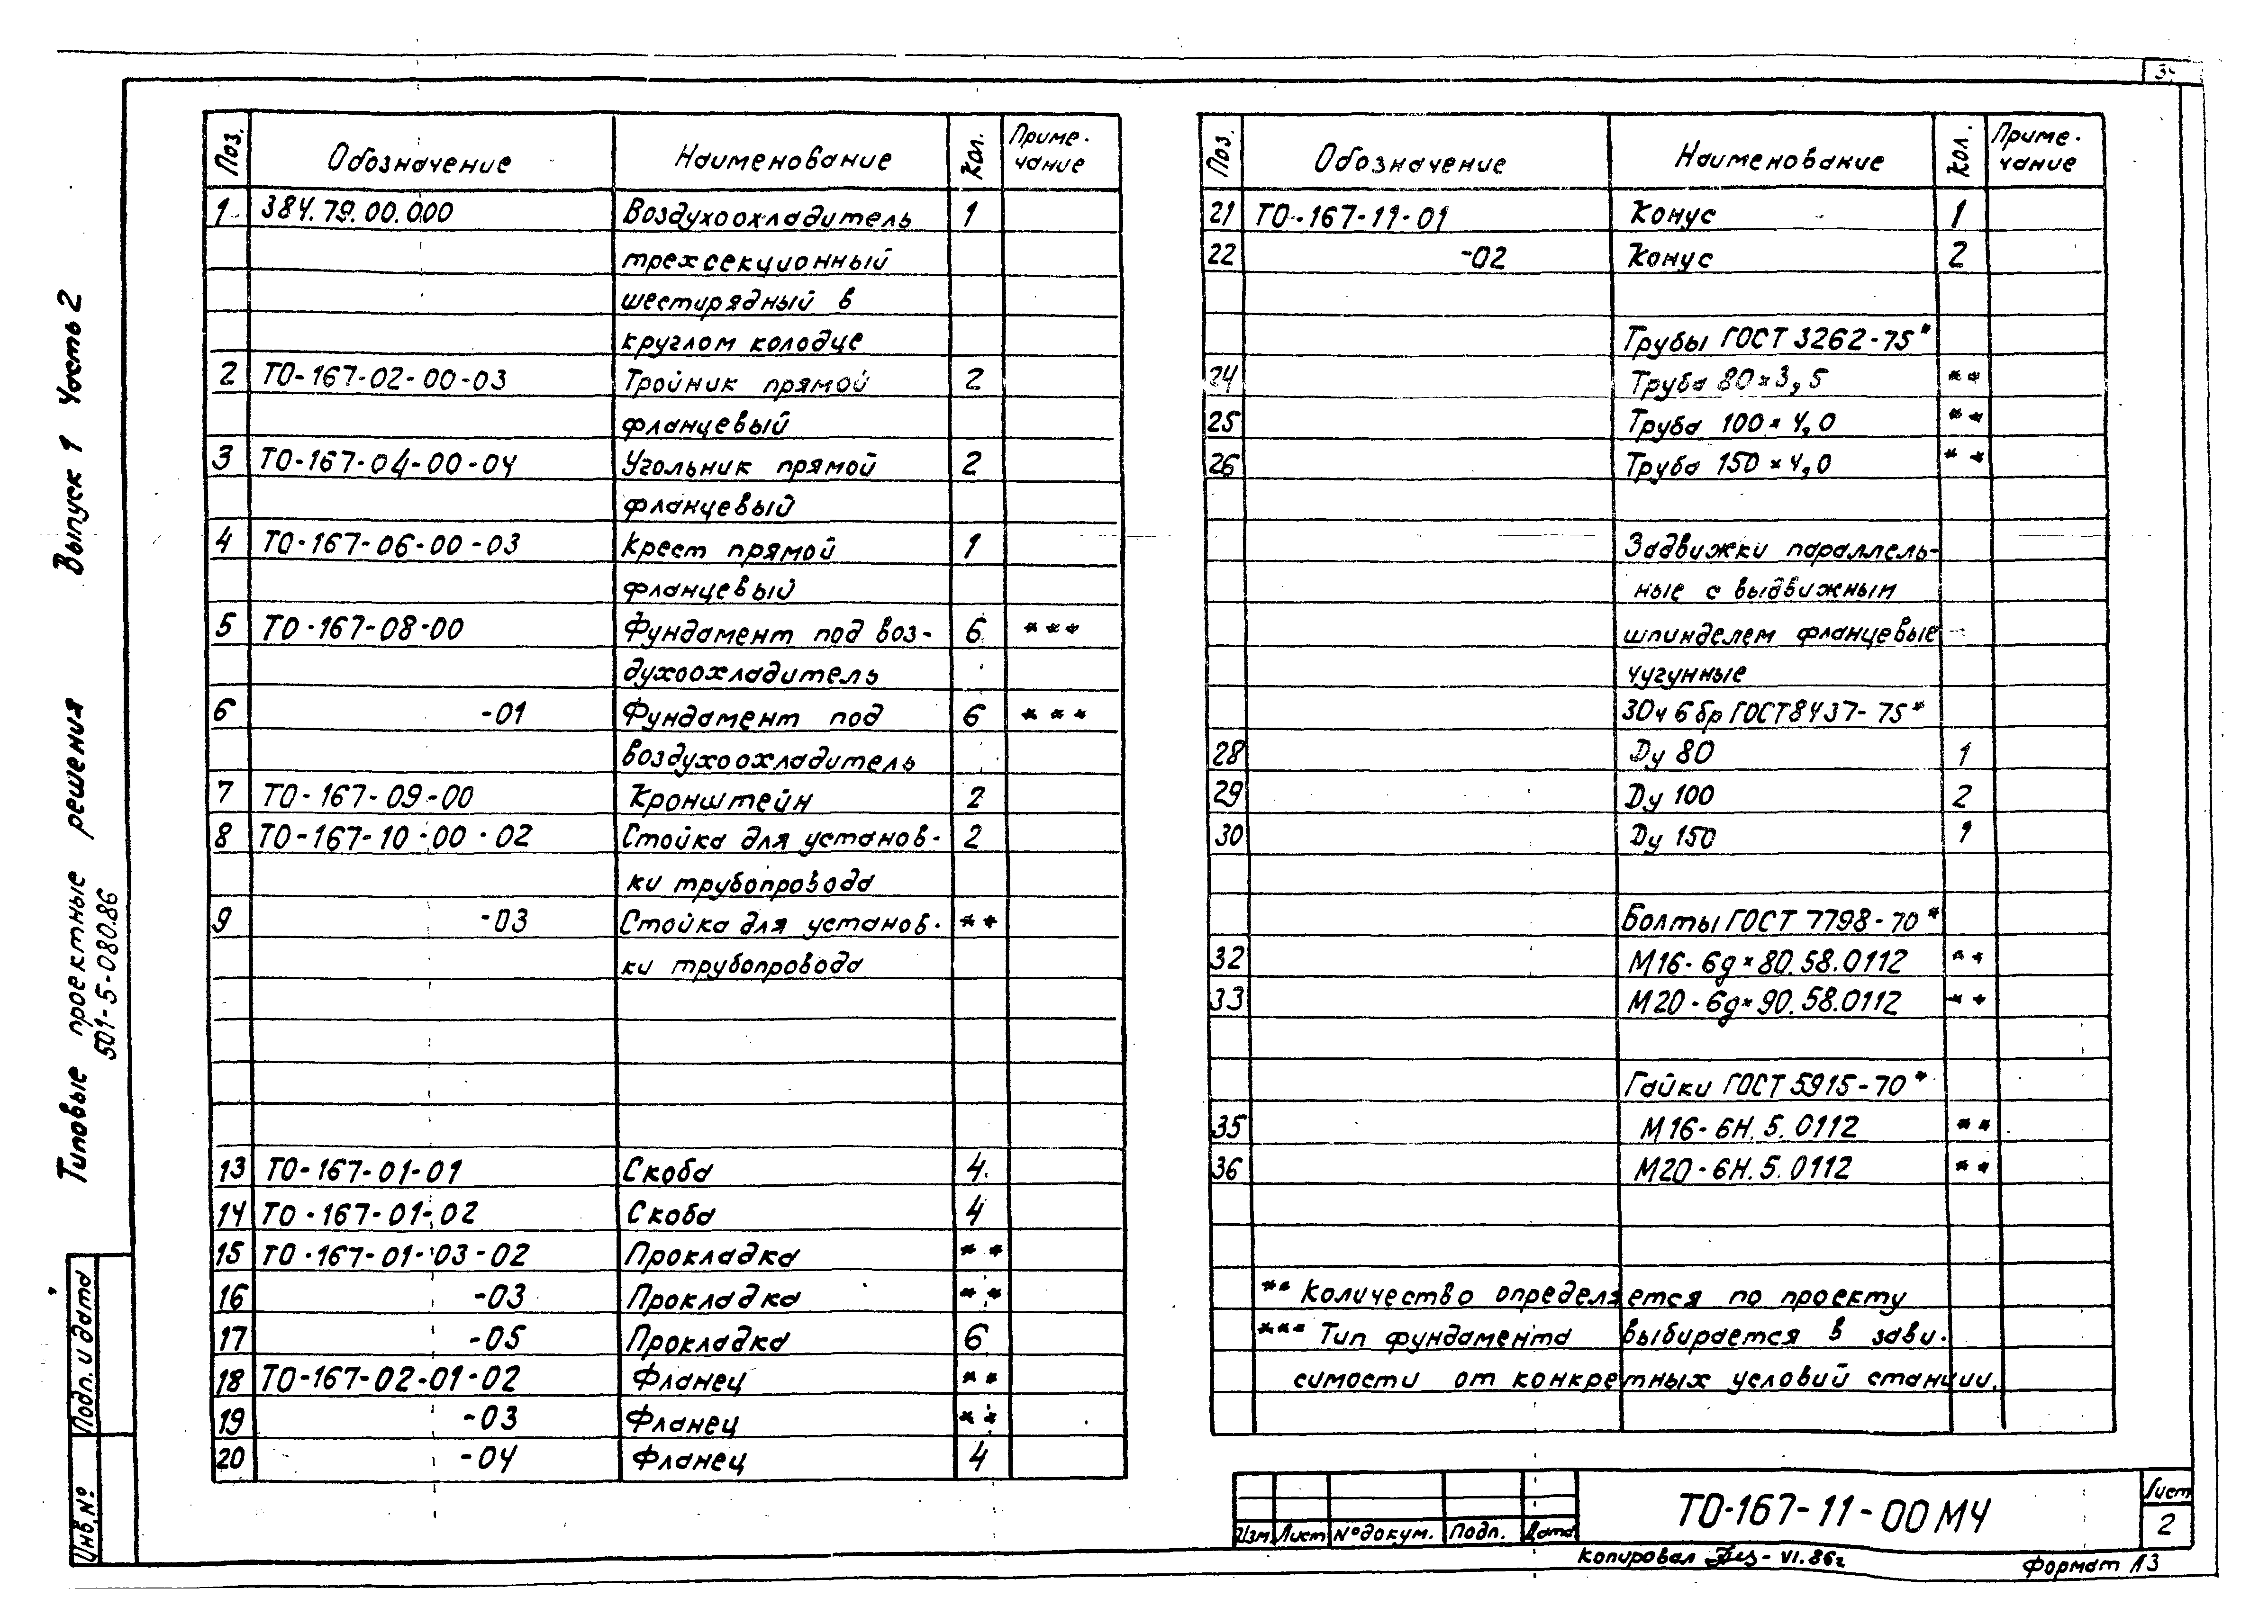 34
Типовые проектные решения Выпуск 1 Часть 2
501-5-080.86
Подп. и дата
Инв. №
Поз. Обозначение Наименование Кол. Приме-
чание
1 384.79.00.000 Воздухоохладитель 1
трехсекционный
шестирядный в
круглом колодце
2 ТО-167-02-00-03 Тройник прямой 2
фланцевый
3 ТО-167-04-00-04 Угольник прямой 2
фланцевый
4 ТО-167-06-00-03 Крест прямой 1
фланцевый
5 ТО-167-08-00 Фундамент под воз- 6 ***
духоохладитель
6 -01 Фундамент под 6 ***
воздухоохладитель
7 ТО-167-09-00 Кронштейн 2
8 ТО-167-10-00-02 Стойка для установ- 2
ки трубопровода
9 -03 Стойка для установ- **
ки трубопровода
13 ТО-167-01-01 Скоба 4
14 ТО-167-01-02 Скоба 4
15 ТО-167-01-03-02 Прокладка **
16 -03 Прокладка **
17 -05 Прокладка 6
18 ТО-167-02-01-02 Фланец **
19 -03 Фланец **
20 -04 Фланец 4
Поз. Обозначение Наименование Кол. Приме-
чание
21 ТО-167-11-01 Конус 1
22 -02 Конус 2
Трубы ГОСТ 3262-75*
24 Труба 80×3,5 **
25 Труба 100×4,0 **
26 Труба 150×4,0 **
Задвижки параллель-
ные с выдвижным
шпинделем фланцевые
чугунные
30ч6бр ГОСТ 8437-75*
28 Ду 80 1
29 Ду 100 2
30 Ду 150 1
Болты ГОСТ 7798-70*
32 М16-6g×80.58.0112 **
33 М20-6g×90.58.0112 **
Гайки ГОСТ 5915-70*
35 М16-6Н.5.0112 **
36 М20-6Н.5.0112 **
** Количество определяется по проекту
*** Тип фундамента выбирается в зави-
симости от конкретных условий станции.
Изм. Лист № докум. Подп. Дата
ТО-167-11-00 МЧ
Лист
2
Копировал - VI.86г
Формат А3